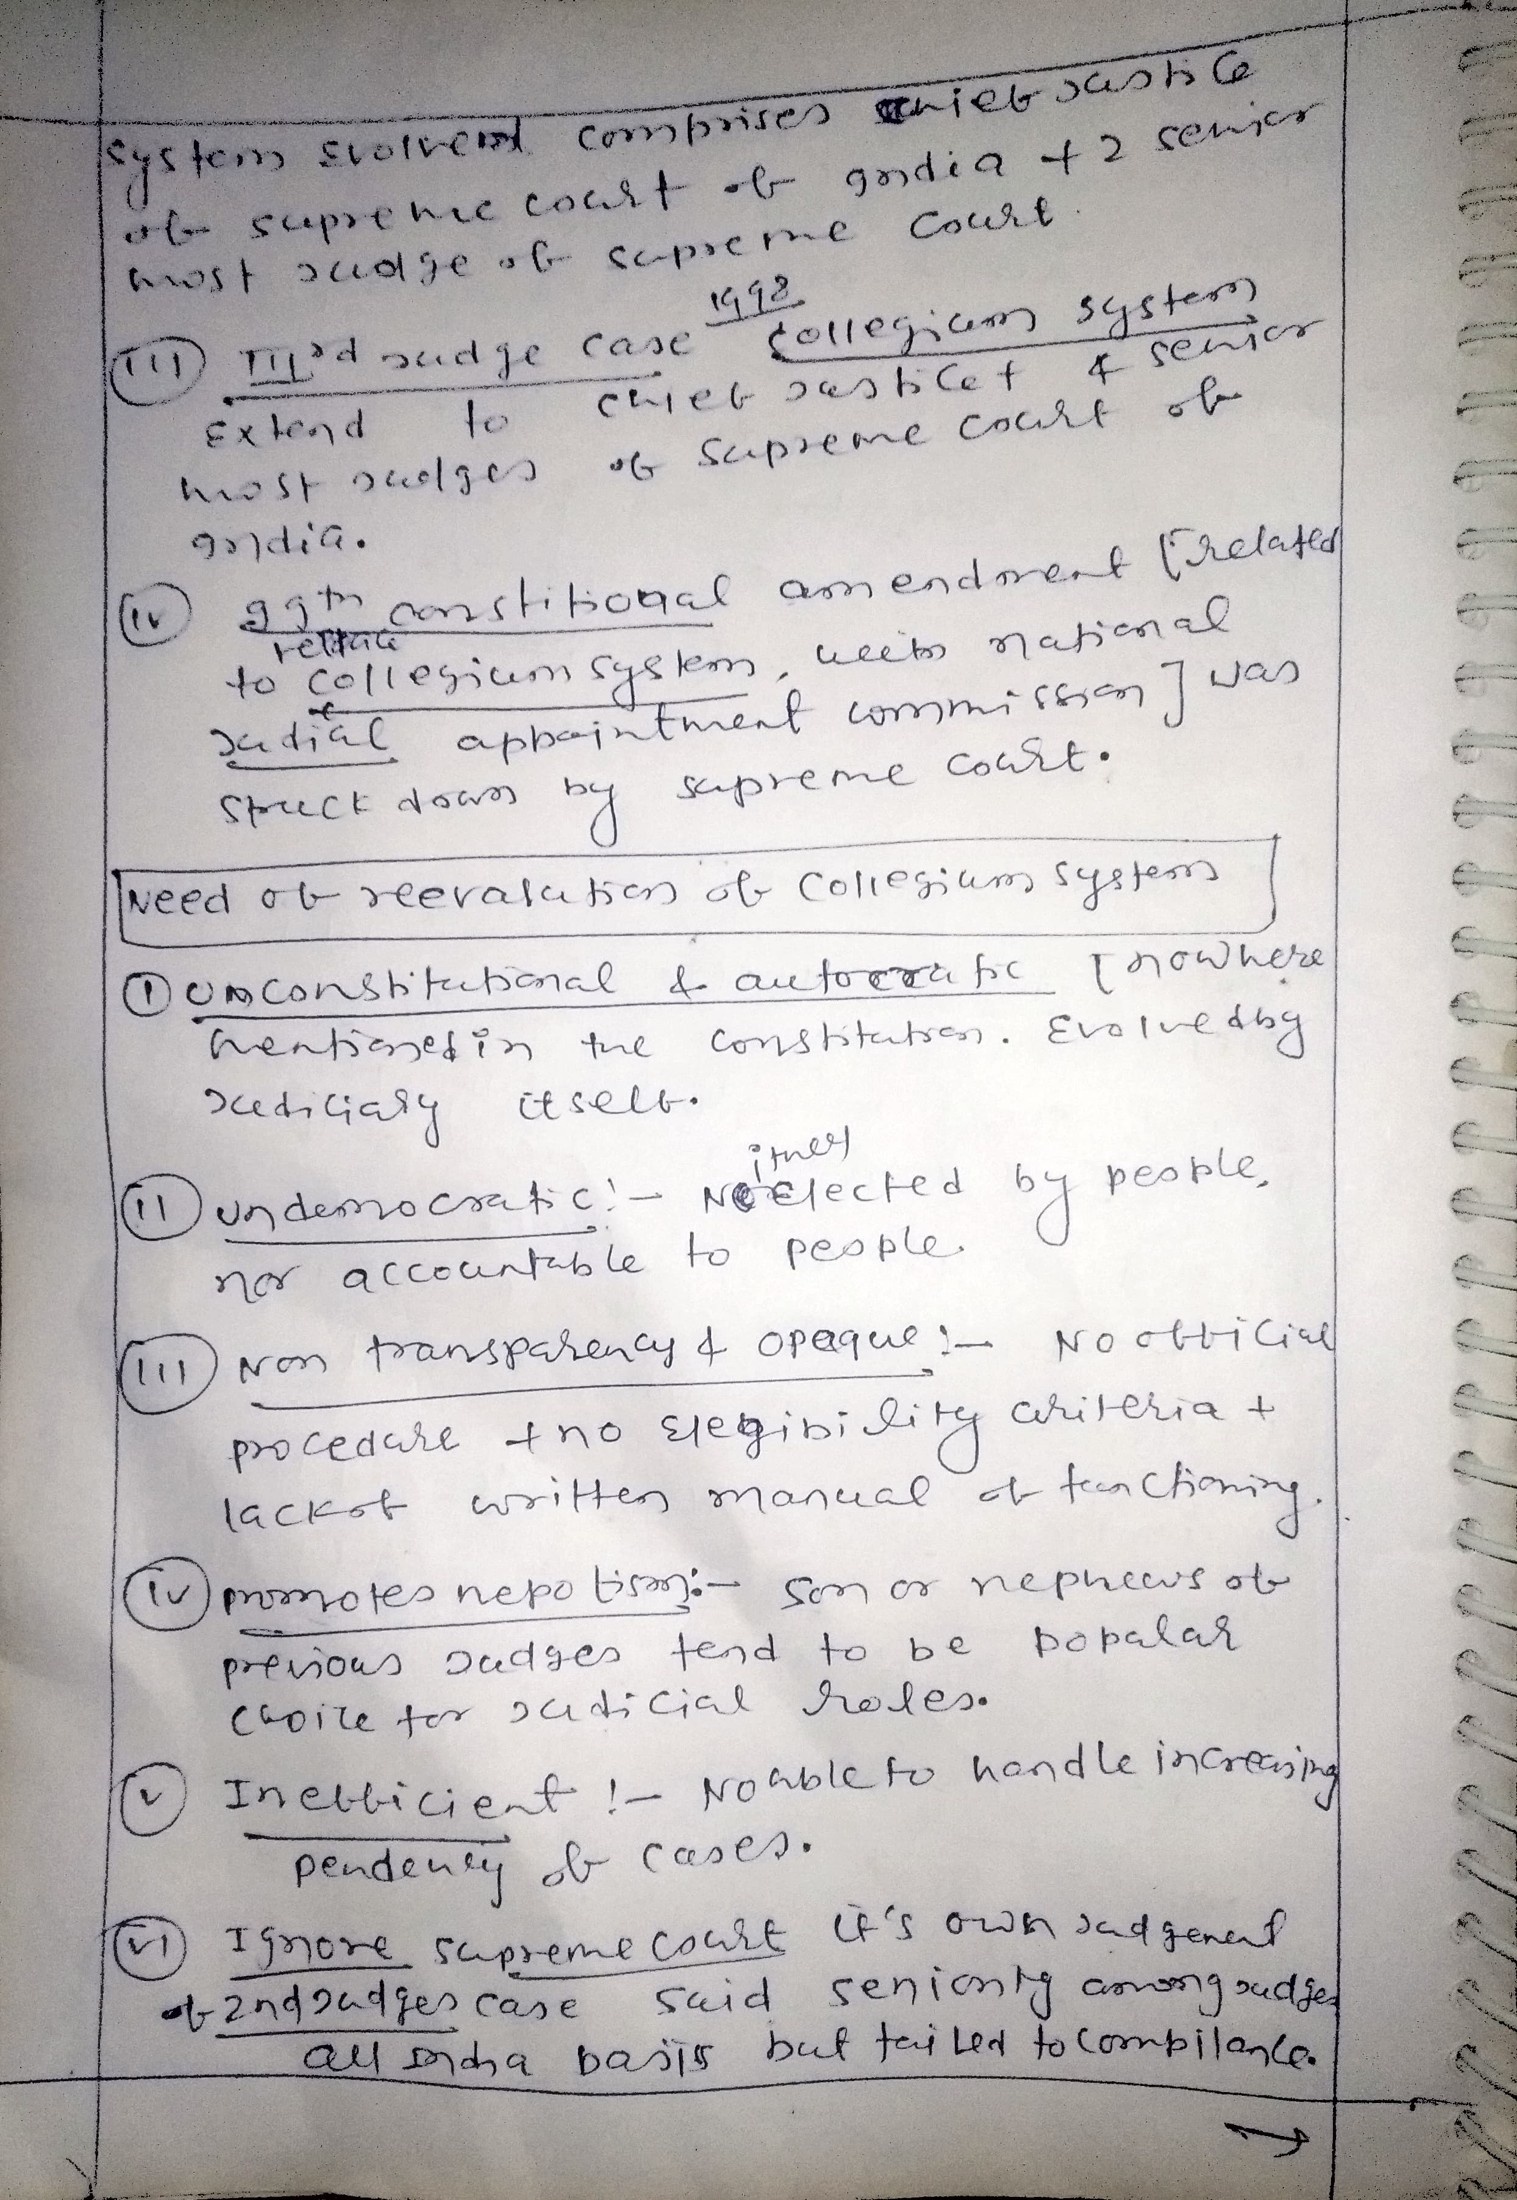 system evolved comprises chief Justice
of supreme court of India + 2 senior
most Judge of supreme court.
(III) IIIrd Judge case 1998 collegium system
Extend to chief Justice + 4 senior
most Judges of Supreme court of
India.
(iv) 99th constitional amendment [related
to replace collegium system, with national
Judicial appointment commission] was
struck down by supreme court.
Need of reevalution of collegium system
(1) unconstitutional & autocratic [nowhere
mentioned in the constitution. Evolved by
Judiciary itself.
(II) undemocratic:- Neither elected by people,
nor accountable to people.
(III) Non transparency & opaque:- No official
procedure + no elegibility criteria +
lack of written manual of functioning.
(iv) promotes nepotism:- Son or nephews of
previous Judges tend to be popular
choice for Judicial roles.
(v) Inefficient :- No able to handle increasing
pendency of cases.
(vi) Ignore supreme court it's own Judgement
of 2nd Judges case said seniority among Judges
all India basis but failed to compilance.
→